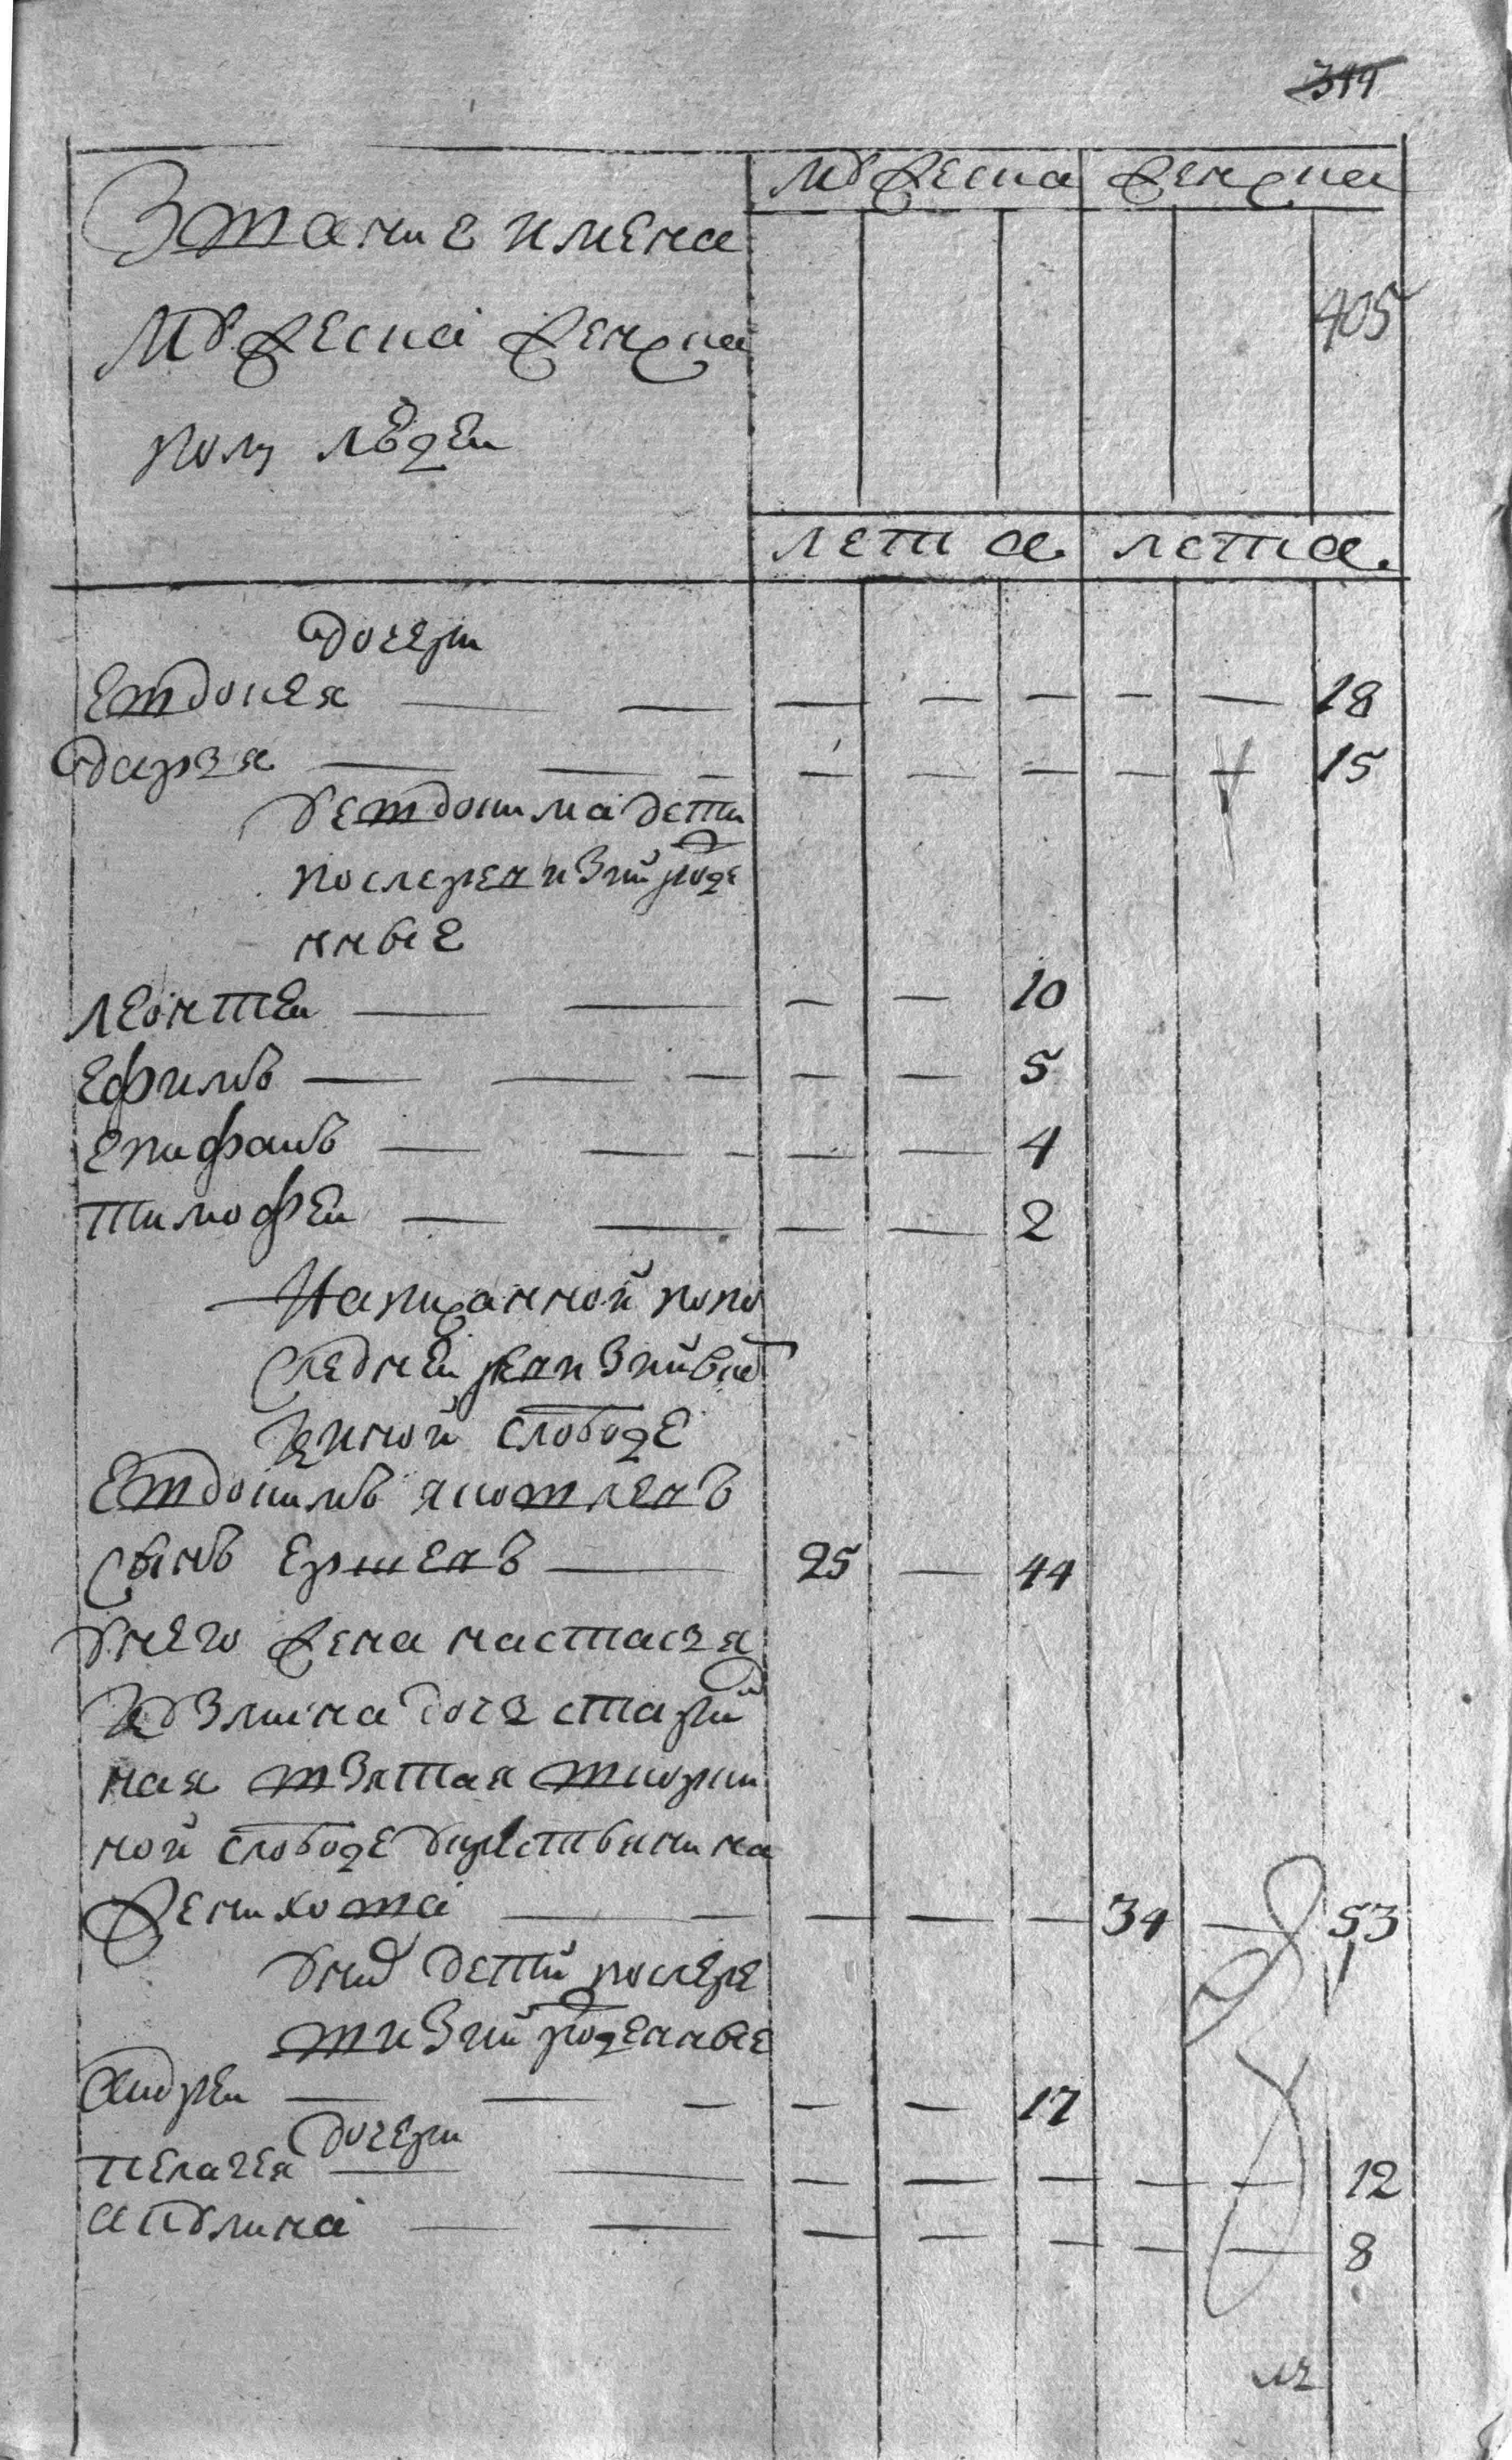 344
мужеска женска
Звание имена
мужеска женска
405
полу людеи
лета лета
дочери
Евдокея 18
Дарья 15
у Евдокима дети
после ревизии рожде
нные
Леонтеи 10
Ефимъ 5
Епифанъ 4
Тимофеи 2
Написанной по по
следнеи ревизии в ык
ной слободе
Евдокимъ яковлевъ
сынъ Ершевъ 25 44
у него жена настасья
Кузмина дочь стари
ная взятая в
ной слободе у крестьянина
53
у них детй после ре
визии рожденные
Андреи 17
дочери
Пелагея 12
Акулина 8